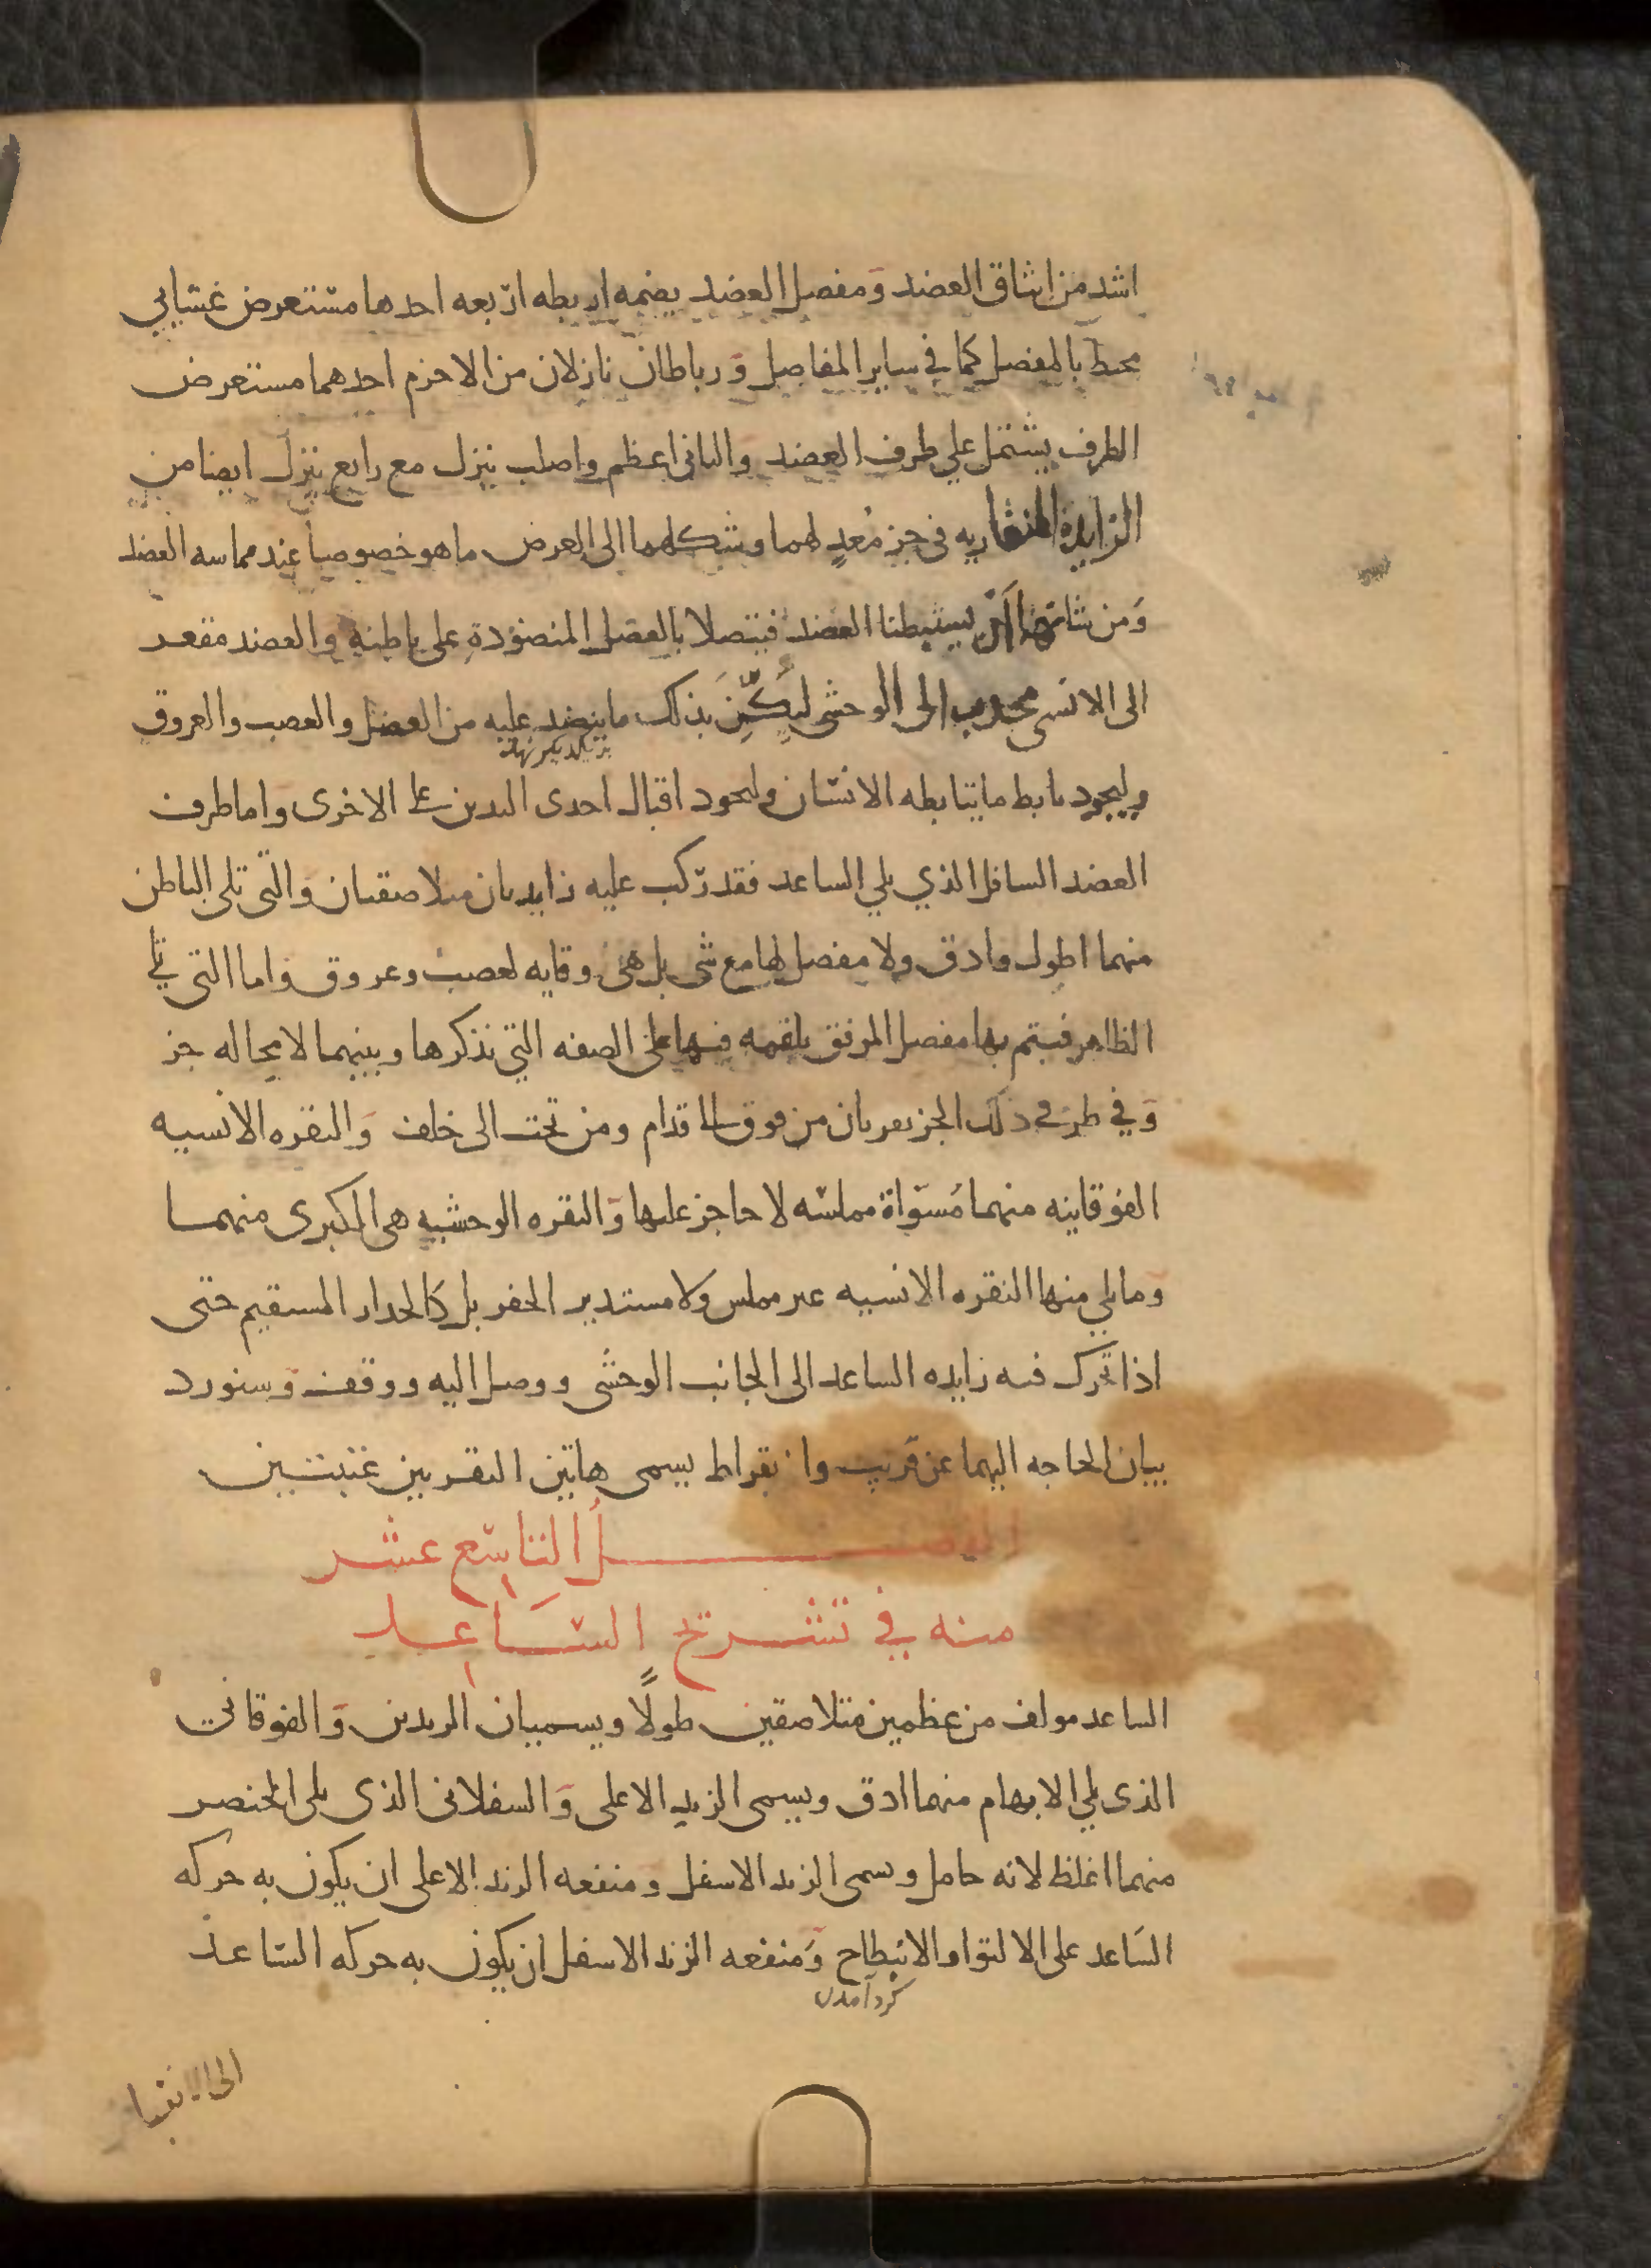 اشد من ايثاق العضد وَمفصل العضد يضمه اربطه اربعه احدها مستعرض غشايي
محيط بالمفصل كما في ساير المفاصل وَرباطان نازلان من الاخرم احدهما مستعرض
الطرف يشتمل علي طرف العضد وَالثاني اعظم واصلب ينزل مع رابع ينزل ايضا من
الزايدة المنقاريه في حز مُعدٍ لهما وشكلهما الى العرض ما هو خصوصاً عند مماسه العضد
وَمن شانهما ان يستبطنا العضد فيتصلا بالعضل المنضوُدةِ على باطنهِ والعضد مقعد
الى الانسى محدب الى الوحشى ليُكِنَّ بذلك ما ينضد عليه من العضل والعصب والعروق
وليجود تابط ما يتابطه الانسان وليجود اقبال احدى اليدين على الاخرى وَاما طرف
العضد السافل الذي يلي الساعد فقد رُكب عليه زايدتان متلاصقتان وَالتي تلي الباطن
منهما اطول وادق ولا مفصل لها مع شى بل هى وقايه لعصب وعروق واما التي تلي
الظاهر فيتم بها مفصل المرفق بلقمه فيها على الصفه التي نذكرها وبينهما لا محاله حز
وَفي طرفي ذلك الحز نقرتان من فوق الى قدام ومن تحت الى خلف وَالنقره الانسيه
الفوقانيه منهما مُسَوّاة مملسّه لا حاجز عليها وَالنقره الوحشيه هى الكبرى منهما
وَما يلي منها النقره الانسيه غير مملس ولا مستدير الحفر بل كَالجدار المستقيم حتى
اذا تحرك فيه زايده الساعد الى الجانب الوحشى ووصل اليه ووقف وَسنورد
بيان الحاجه اليهما عن قَريب وا بقراط يسمى هاتين النقرتين عتبتين
الفصـــــــلُ التاسع عشر
منه في تشريح السَاعد
الساعد مولف من عظمين متلاصقين طولاً ويسميان الزندين وَالفوقاني
الذى يلي الابهام منهما ادق ويسمى الزند الاعلى وَالسفلانى الذى يلى الخنصر
منهما اغلظ لانه حامل ويسمى الزند الاسفل ومنفعه الزند الاعلى ان يكون به حركه
السَاعد على الالتوا والانبطاح وَمنفعه الزند الاسفل ان يكون به حركه السّاعد
كرد آمدن
الى الانقبا